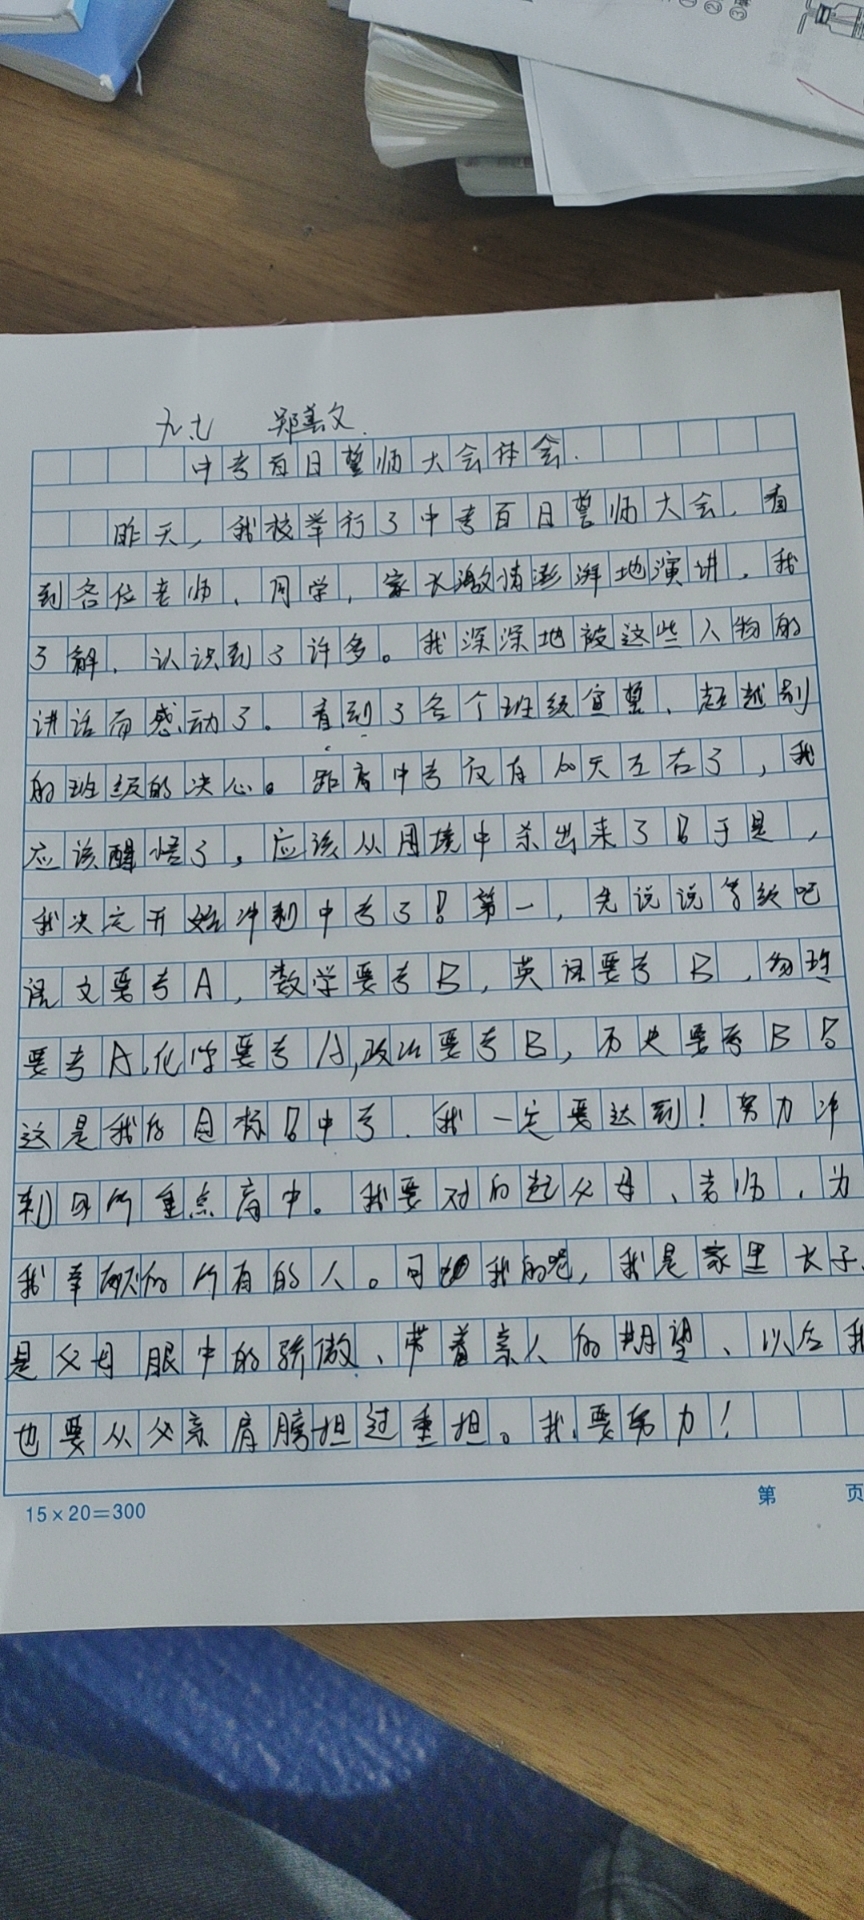 ①②③
九.七 郑善文.
中考百日誓师大会体会.
昨天，我校举行了中考百日誓师大会.看
到各位老师、同学，家长激情澎湃地演讲.我
了解.认识到了许多。我深深地被这些人物的
讲话而感动了.看到了各个班级宣誓、超越别
的班级的决心。距离中考仅有100天左右了，我
应该醒悟了。应该从困境中杀出来了！于是，
我决定开始冲刺中考了！第一，先说说等级吧
语文要考A，数学要考B，英语要考B，物理
要考A,化学要考A,政治要考B，历史要考B！
这是我的目标！中考.我一定要达到！努力冲
刺四所重点高中。我要对的起父母、老师、为
我奉献的所有的人。可我的呢，我是家里长子.
是父母眼中的骄傲、带着亲人的期望、以后我
也要从父亲肩膀担过重担。我要努力！
15×20=300
第 页